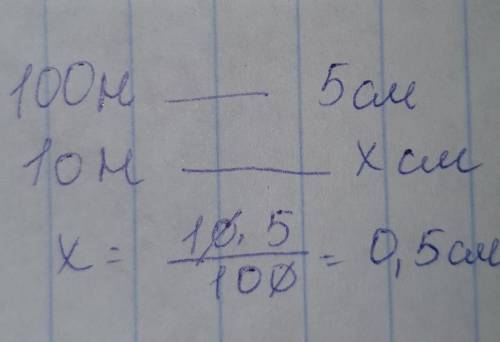 100н — 5см
10н — x см
x = 10·5/100 = 0,5см